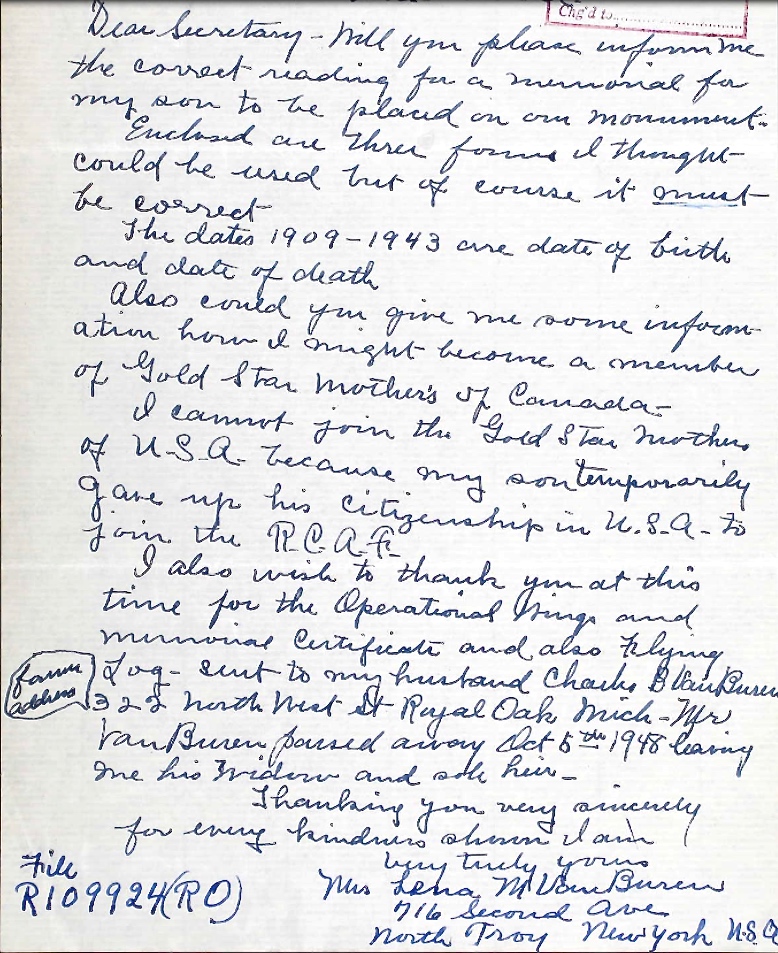 Chg'd to
Dear Secretary - Will you please inform me
the correct reading for a memorial for
my son to be placed on our monument -
Enclosed are three forms I thought
could be used but of course it must
be correct
The dates 1909-1943 are date of birth
and date of death
Also could you give me some inform-
ation how I might become a member
of Gold Star Mother's of Canada -
I cannot join the Gold Star Mothers
of U.S.A. because my son temporarily
gave up his citizenship in U.S.A. to
join the R.C.A.F.
I also wish to thank you at this
time for the Operational Wings and
Memorial Certificate and also Flying
Log - sent to my husband Charles B Van Buren
address
322 North West St Royal Oak Mich - Mr
Van Buren passed away Oct 5th 1948 leaving
me his widow and sole heir -
Thanking you very sincerely
for every kindness shown I am
Very truly yours
File
Mrs Lena M Van Buren
R109924(RO)
716 Second Ave
North Troy New York U.S.A